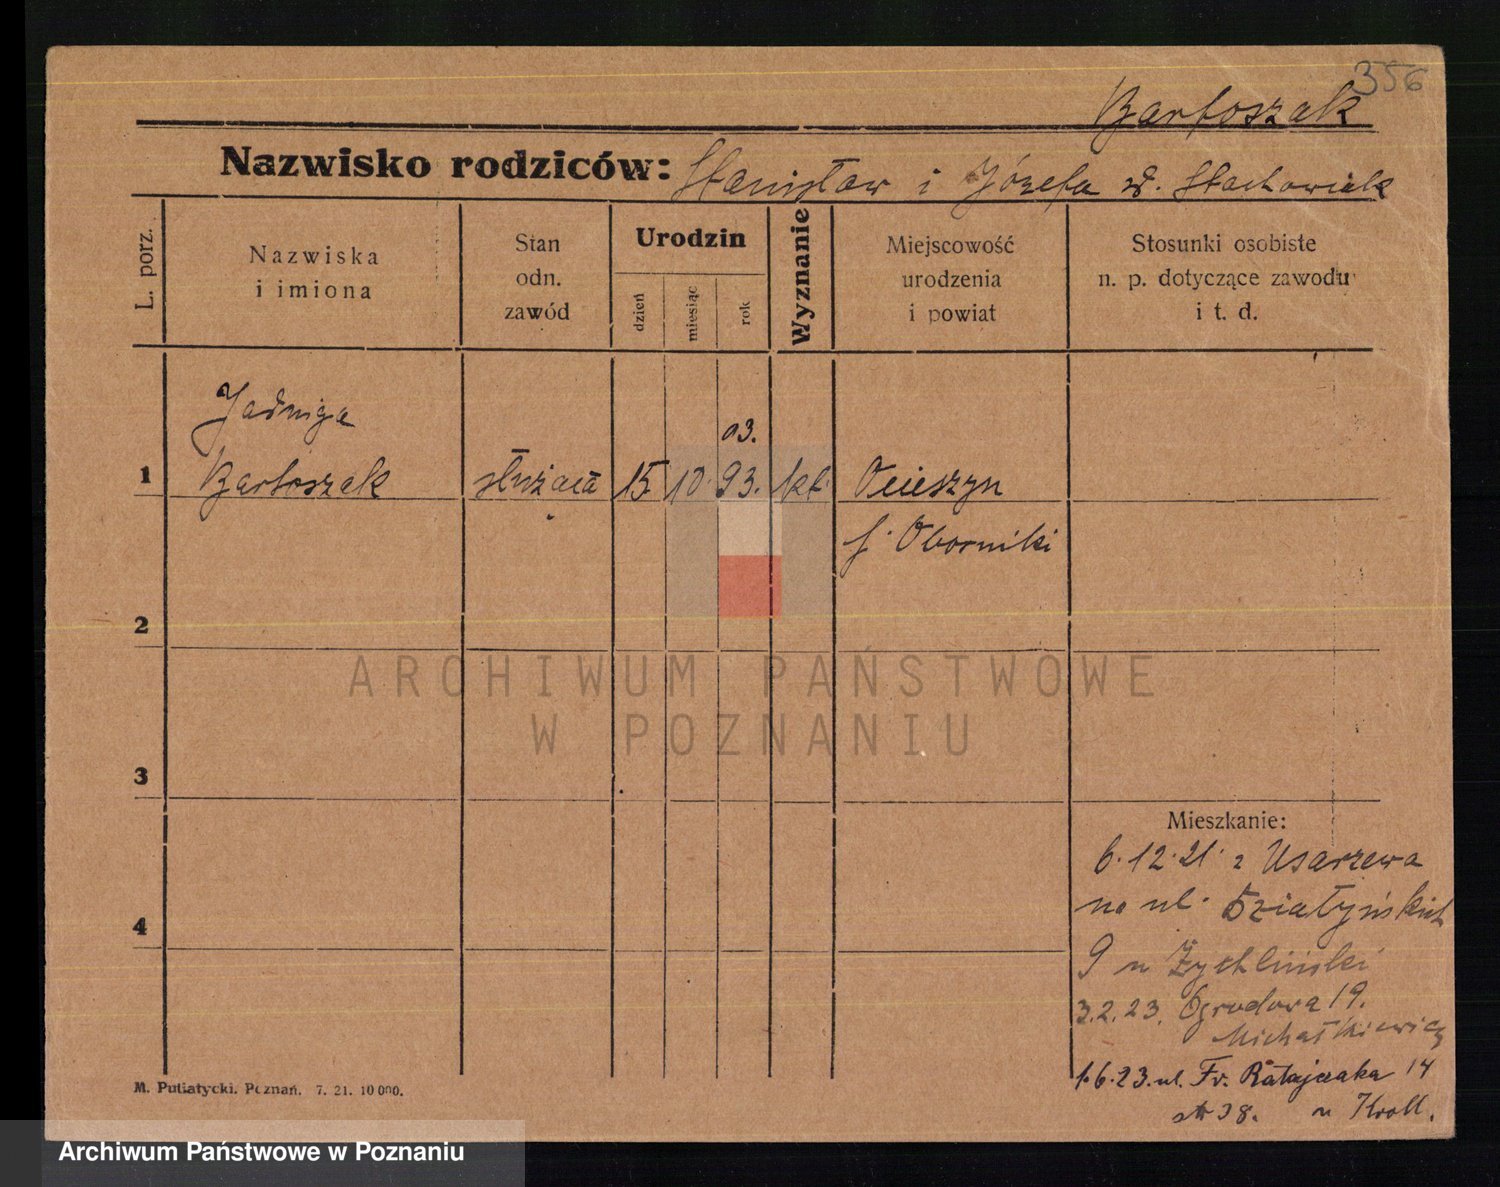 356
Bartoszak
Nazwisko rodziców: Stanisław i Józefa zd. Stachowiak
L. porz.
Nazwiska
i imiona
Stan
odn.
zawód
Urodzin
dzień
miesiąc
rok
Wyznanie
Miejscowość
urodzenia
i powiat
Stosunki osobiste
n. p. dotyczące zawodu
i t. d.
Jadwiga
03.
1 Bartoszak służąca 15 10. 93. kt. Ocieszyn
Oborniki
2
ARCHIWUM PAŃSTWOWE
W POZNANIU
3
Mieszkanie:
6.12.21. z Usarzewa
na ul. Działyńskich
4
9 u Żychliński
3.2.23. Ogrodowa 19.
Michałkiewicz
1.6.23. ul. Fr. Ratajczaka 14
38. u Kroll.
M. Putiatycki. Poznań. 7. 21. 10 000.
Archiwum Państwowe w Poznaniu